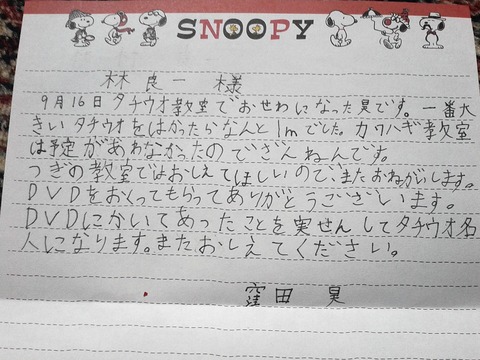 SNOOPY
林 良一 様
9月16日タチウオ教室でおせわになった昊です。一番大
きいタチウオをはかったらなんと1mでした。カワハギ教室
は予定があわなかったのでざんねんです。
つぎの教室ではおしえてほしいので、またおねがいします。
DVDをおくってもらってありがとうございます。
DVDにかいてあったことを実せんしてタチウオ名
人になります。またおしえてください。
窪田 昊